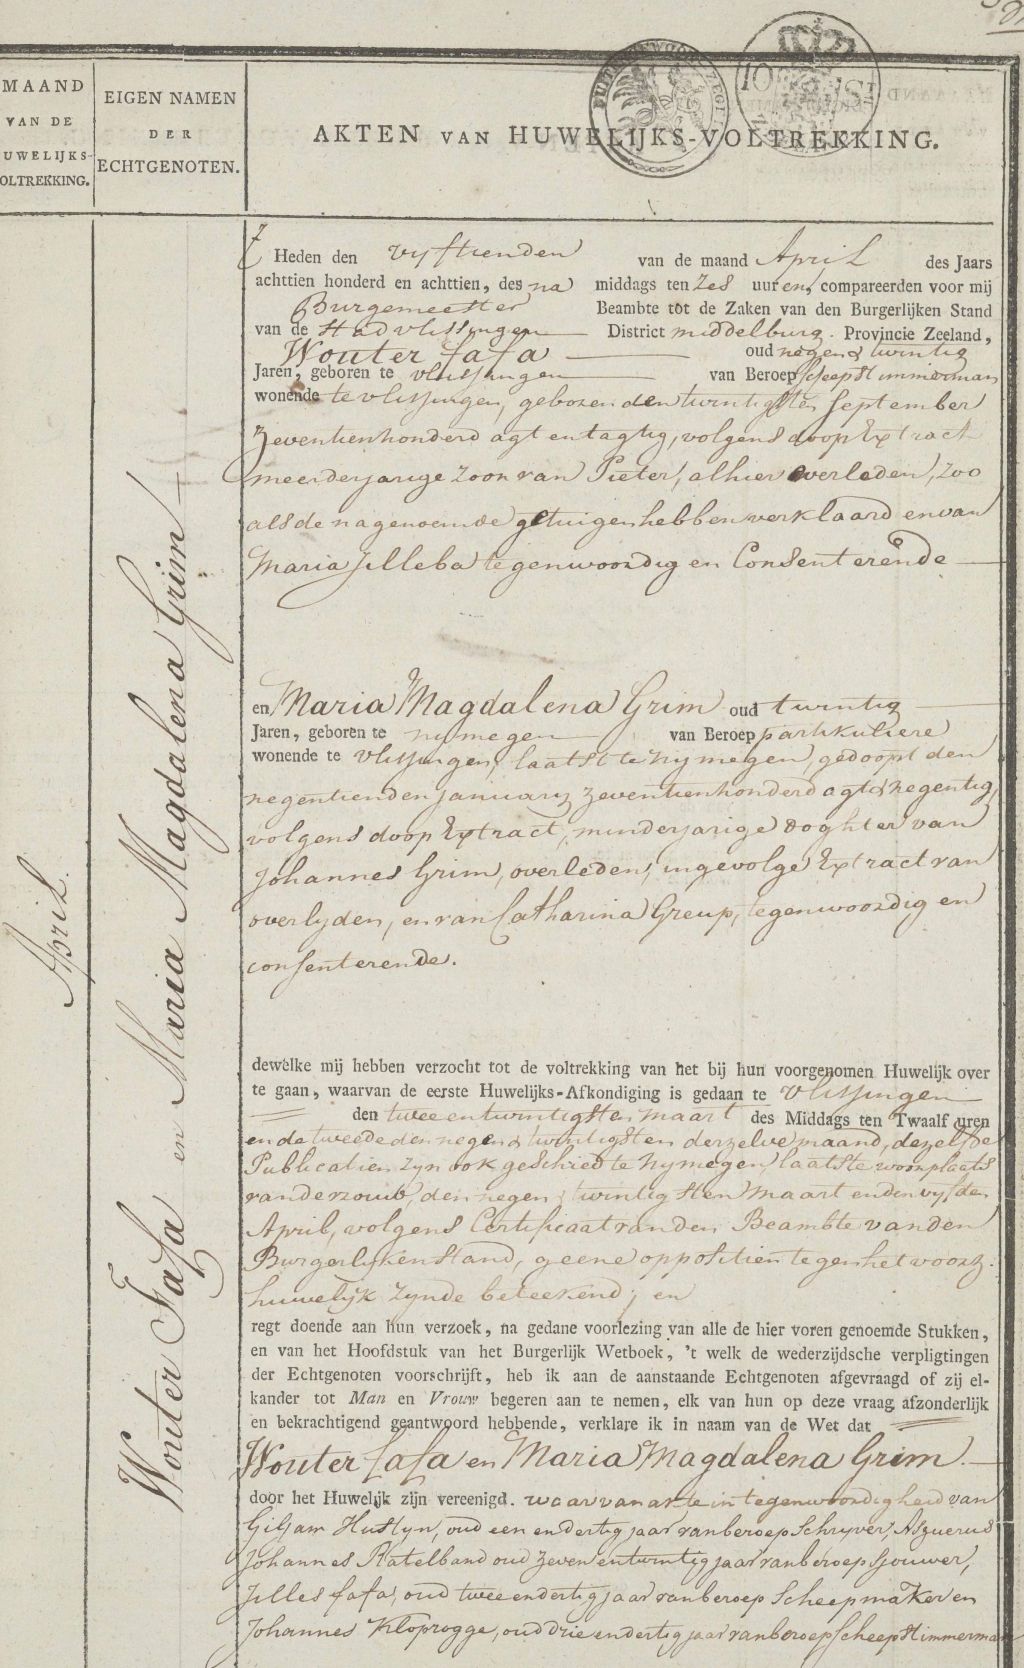 MAAND
VAN DE
UWELIJKS-
OLTREKKING.
EIGEN NAMEN
DER
ECHTGENOTEN.
AKTEN VAN HUWELIJKS-VOLTREKKING.
Heden den vyftienden van de maand April des Jaars
achttien honderd en achttien, des na middags ten zes uuren, compareerden voor mij
Burgemeester Beambte tot de Zaken van den Burgerlijken Stand
van de Stad vlissingen District middelburg. Provincie Zeeland,
Wouter fafa oud negen & twintig
Jaren, geboren te vlissingen van Beroep scheepstimmerman
wonende te vlissingen, geboren den twintigsten september
zeventienhonderd agt en tagtig, volgens doop Extract
meerderjarige zoon van Pieter, alhier overleden, zoo
als de nagenoemde getuigen hebben verklaard en van
Maria Jilleba tegenwoordig en Consenterende
en Maria Magdalena Grim oud twintig
Jaren, geboren te nymegen van Beroep partikuliere
wonende te vlissingen, laatst te nymegen, gedoopt den
negentienden january zeventienhonderd agt & negentig,
volgens doop Extract, minderjarige doghter van
Johannes Grim, overleden, ingevolge Extract van
overlyden, en van Catharina Greup, tegenwoordig en
consenterende.
dewelke mij hebben verzocht tot de voltrekking van het bij hun voorgenomen Huwelijk over
te gaan, waarvan de eerste Huwelijks-Afkondiging is gedaan te vlissingen
den twee en twintigsten maart des Middags ten Twaalf uren
en de tweede den negen & twintigsten derzelve maand, dezelfde
Publicatien zyn ook geschied te nymegen, laatste woonplaats
van de vrouw, den negen & twintigsten maart en den vyfden
April, volgens Certificaat van den Beambte van den
Burgerlyken stand, geene oppositien tegen het voorz.
huwelijk zynde beteekend; en
regt doende aan hun verzoek, na gedane voorlezing van alle de hier voren genoemde Stukken,
en van het Hoofdstuk van het Burgerlijk Wetboek, 't welk de wederzijdsche verpligtingen
der Echtgenoten voorschrijft, heb ik aan de aanstaande Echtgenoten afgevraagd of zij el-
kander tot Man en Vrouw begeren aan te nemen, elk van hun op deze vraag afzonderlijk
en bekrachtigend geantwoord hebbende, verklare ik in naam van de Wet dat
Wouter fafa en Maria Magdalena Grim.
door het Huwelijk zijn vereenigd. waar van acte in tegenwoordigheid van
Giljam Hustyn, oud een en dertig jaar van beroep Schryver, Aszuerus
Johannes Ratelband oud zeven en twintig jaar van beroep sjouwer,
Jilles fafa, oud twee en dertig jaar van beroep scheepmaker en
Johannes Kloprogge, oud drie en dertig jaar van beroep scheepstimmerman
April.
Wouter Fafa en Maria Magdalena Grim